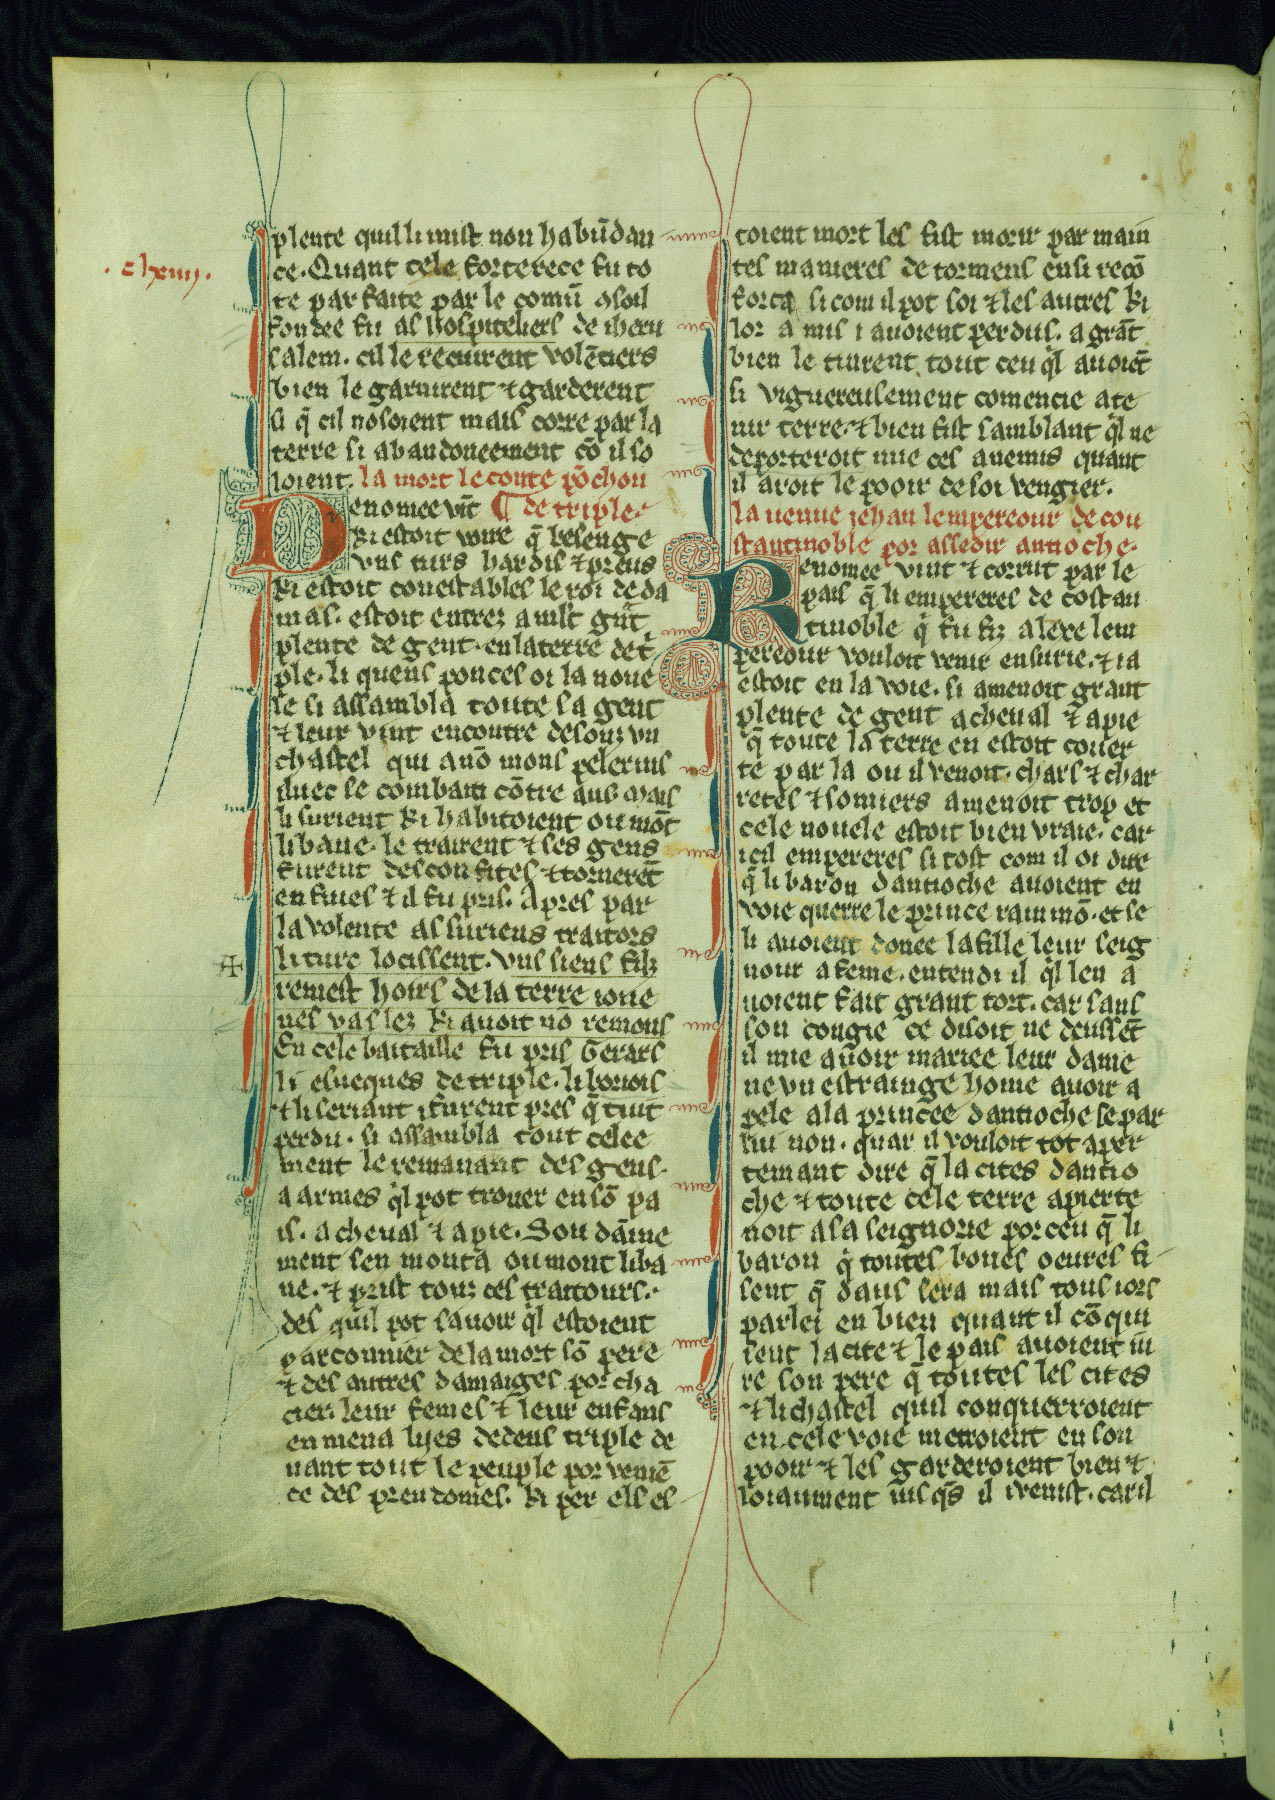 .clxiiij.
plente quil li mist non habūdan
ce. Quant cele forterece fu to
te parfaite par le comū ꝯsoil
fondee fu as hospiteliers de iheru
salem. cil le recuirent volētiers
bien le garnirent ⁊ garderent
si q̄ cil nosoient mais corre par la
terre si abandoneement cō il so
loient. la mort le conte pōchon
¶ de triple.
Renomee vīt
ki estoit voire q̄ beseuge
vns turs hardis ⁊ preus
ki estoit conestables le roi de da
mas. estoit entrez a mlt grāt
plente de gent. en la terre de t̄
ple. li quens ponces oi la noue
le si assambla toute sa gent
⁊ leur vint encontre desouz vn
chastel qui a nō mons pelerins
iluec se combati cōtre aus Mais
li surient ki habitoient ou mōt
libane. le trairent ⁊ ses gens
furent desconfites ⁊ tornerēt
en fuies ⁊ il fu pris. Apres par
la volente as suriens traitors
li turc locissent. vns siens filz
remest hoirs de la terre ione
nes vaslez ki auoit nō remons
En cele bataille fu pris Gerars
li euesques de triple. li boriois
⁊ li seriant i furent pres q̄ tuit
perdu. si assambla tout celee
ment le remanant des gens.
a armes q̄l pot trouer en sō pa
is. a cheual ⁊ a pie. Soudaine
ment sen monta ou mont liba
ne. ⁊ prist touz ces traitours.
des quil pot sauoir q̄l estoient
parconnier de la mort sō pere
⁊ des autres damaiges por cha
cier. leur femes ⁊ leur enfans
en mena liies dedens triple de
uant tout le peuple por veniē
ce des preudomes. ki per ells es
toient mort les fist morir par main
tes manieres de tormens ensi recō
forta si com il pot soi ⁊ les autres ki
lor amis i auoient perdus. a grāt
bien le tinrent tout ceu q̄l auoiēt
si viguereusement comencie a te
nir terre. ⁊ bien fist samblant q̄l ne
deporteroit mie ces anemis quant
il aroit le pooir de soi vengier.
la uenue jehan lempereour de con
stantinoble por assedir antioche.
Renomee vint ⁊ corrut par le
pais q̄ li empereres de costan
tinoble q̄ fu fiz alexe lem
pereour vouloit venir en surie. ⁊ ia
estoit en la voie. si amenoit grant
plente de gent a cheual ⁊ a pie
q̄ toute la terre en estoit couer
te par la ou il venoit. chars ⁊ char
retes ⁊ somiers amenoit trop et
cele nouele estoit bien vraie. car
icil empereres si tost com il oi dire
q̄ li baron dantioche auoient en
voie querre le prince raimmō. et se
li auoient donee la fille leur seig
nour a feme. entendi il q̄l len a
uoient fait grant tort. car sans
son congie ce disoit ne deussēt
il mie auoir mariee leur dame
ne vn estrainge home auoir a
pele a la princee dantioche se par
lui non. quar il vouloit tot aper
temant dire q̄ la cites dantio
che ⁊ toute cele terre apierte
noit a sa seignorie por ceu q̄ li
baron q̄ toutes bones oeures fi
sent q̄ dans sera mais tous iors
parlei en bien quant il cōqui
sent la cite ⁊ le pais auoient iu
re son pere q̄ toutes les cites
⁊ li chastel quil conquerroient
en cele voie metroient en son
pooir ⁊ les garderoient bien ⁊
loiaument iusq̄s il i venist. car il